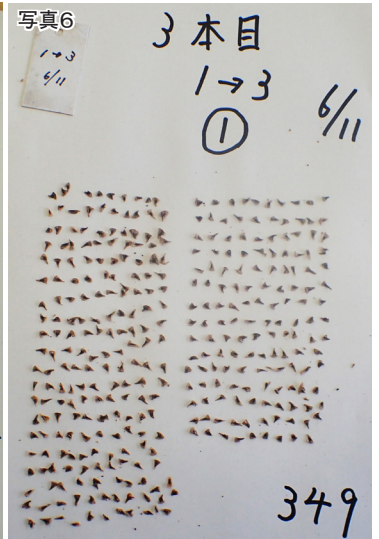 写真6
1→3
6/11
3本目
1→3
6/11
①
349